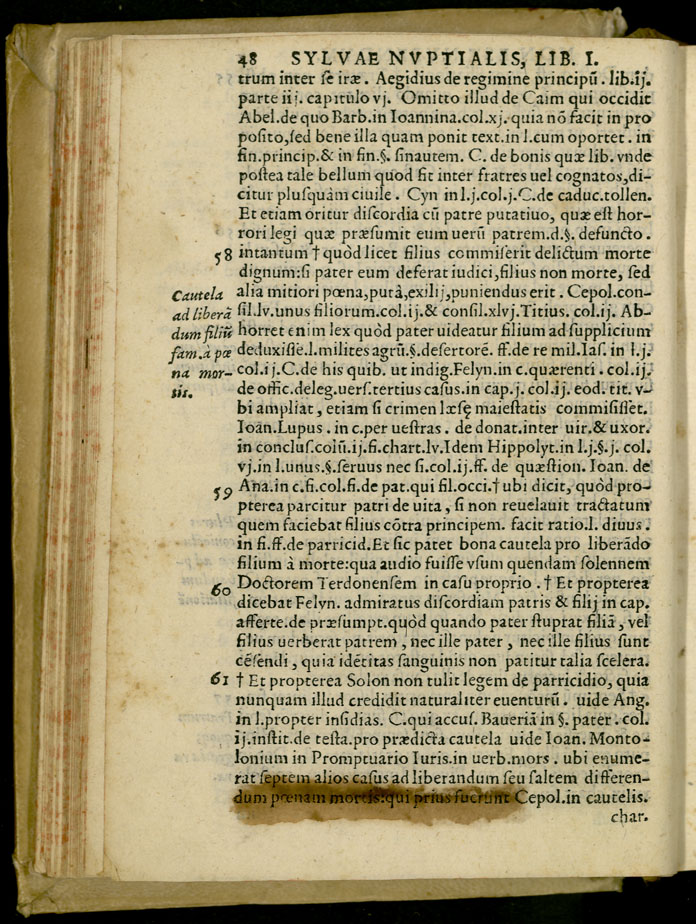 48 SYLVAE NVPTIALIS, LIB. I.
trum inter se iræ. Aegidius de regimine principũ. lib.ij.
parte iij. capitulo vj. Omitto illud de Caim qui occidit
Abel.de quo Barb.in Ioannina.col.xj. quia nõ facit in pro
posito,sed bene illa quam ponit text.in l.cum oportet. in
fin.princip.& in fin.§. sinautem. C. de bonis quæ lib. vnde
postea tale bellum quod fit inter fratres uel cognatos,di-
citur plusquàm ciuile. Cyn in l.j.col.j.C.de caduc.tollen.
Et etiam oritur discordia cũ patre putatiuo, quæ est hor-
rori legi quæ præsumit eum uerũ patrem.d.§. defuncto.
58 intantum † quòd licet filius commiserit delictum morte
dignum:si pater eum deferat iudici,filius non morte, sed
alia mitiori pœna,putà,exilij,puniendus erit. Cepol.con-
sil.lv.unus filiorum.col.ij.& consil.xlvj.Titius. col.ij. Ab-
horret enim lex quòd pater uideatur filium ad supplicium
deduxisse.l.milites agrũ.§.desertorẽ. ff.de re mil.Ias. in l.j.
col.ij.C.de his quib. ut indig.Felyn.in c.quærenti. col.ij.
de offic.deleg.uers.tertius casus.in cap.j. col.ij. eod. tit. v-
bi ampliat, etiam si crimen læsę maiestatis commisisset.
Ioan.Lupus. in c.per uestras. de donat.inter uir.& uxor.
in conclus.colũ.ij.fi.chart.lv.Idem Hippolyt.in l.j.§.j. col.
vj.in l.unus.§.seruus nec si.col.ij.ff. de quæstion. Ioan. de
59 Ana.in c.fi.col.fi.de pat.qui fil.occi.† ubi dicit, quòd pro-
pterea parcitur patri de uita, si non reuelauit tractatum
quem faciebat filius cõtra principem. facit ratio.l. diuus.
in fi.ff.de parricid.Et sic patet bona cautela pro liberãdo
filium à morte:qua audio fuisse vsum quendam solennem
60 Doctorem Terdonensem in casu proprio. † Et propterea
dicebat Felyn. admiratus discordiam patris & filij in cap.
afferte.de præsumpt.quòd quando pater stuprat filiã, vel
filius uerberat patrem, nec ille pater, nec ille filius sunt
cẽsendi, quia idẽtitas sanguinis non patitur talia scelera.
61 † Et propterea Solon non tulit legem de parricidio, quia
nunquam illud credidit naturaliter euenturũ. uide Ang.
in l.propter insidias. C.qui accus. Bauerià in §. pater. col.
ij.instit.de testa.pro prædicta cautela uide Ioan. Monto-
lonium in Promptuario Iuris.in uerb.mors. ubi enume-
rat septem alios casus ad liberandum seu saltem differen-
dum pœnam mortis:qui prius fuerunt Cepol.in cautelis.
char.
Cautela
ad liberã
dum filiũ
fam.à pœ
na mor-
tis.